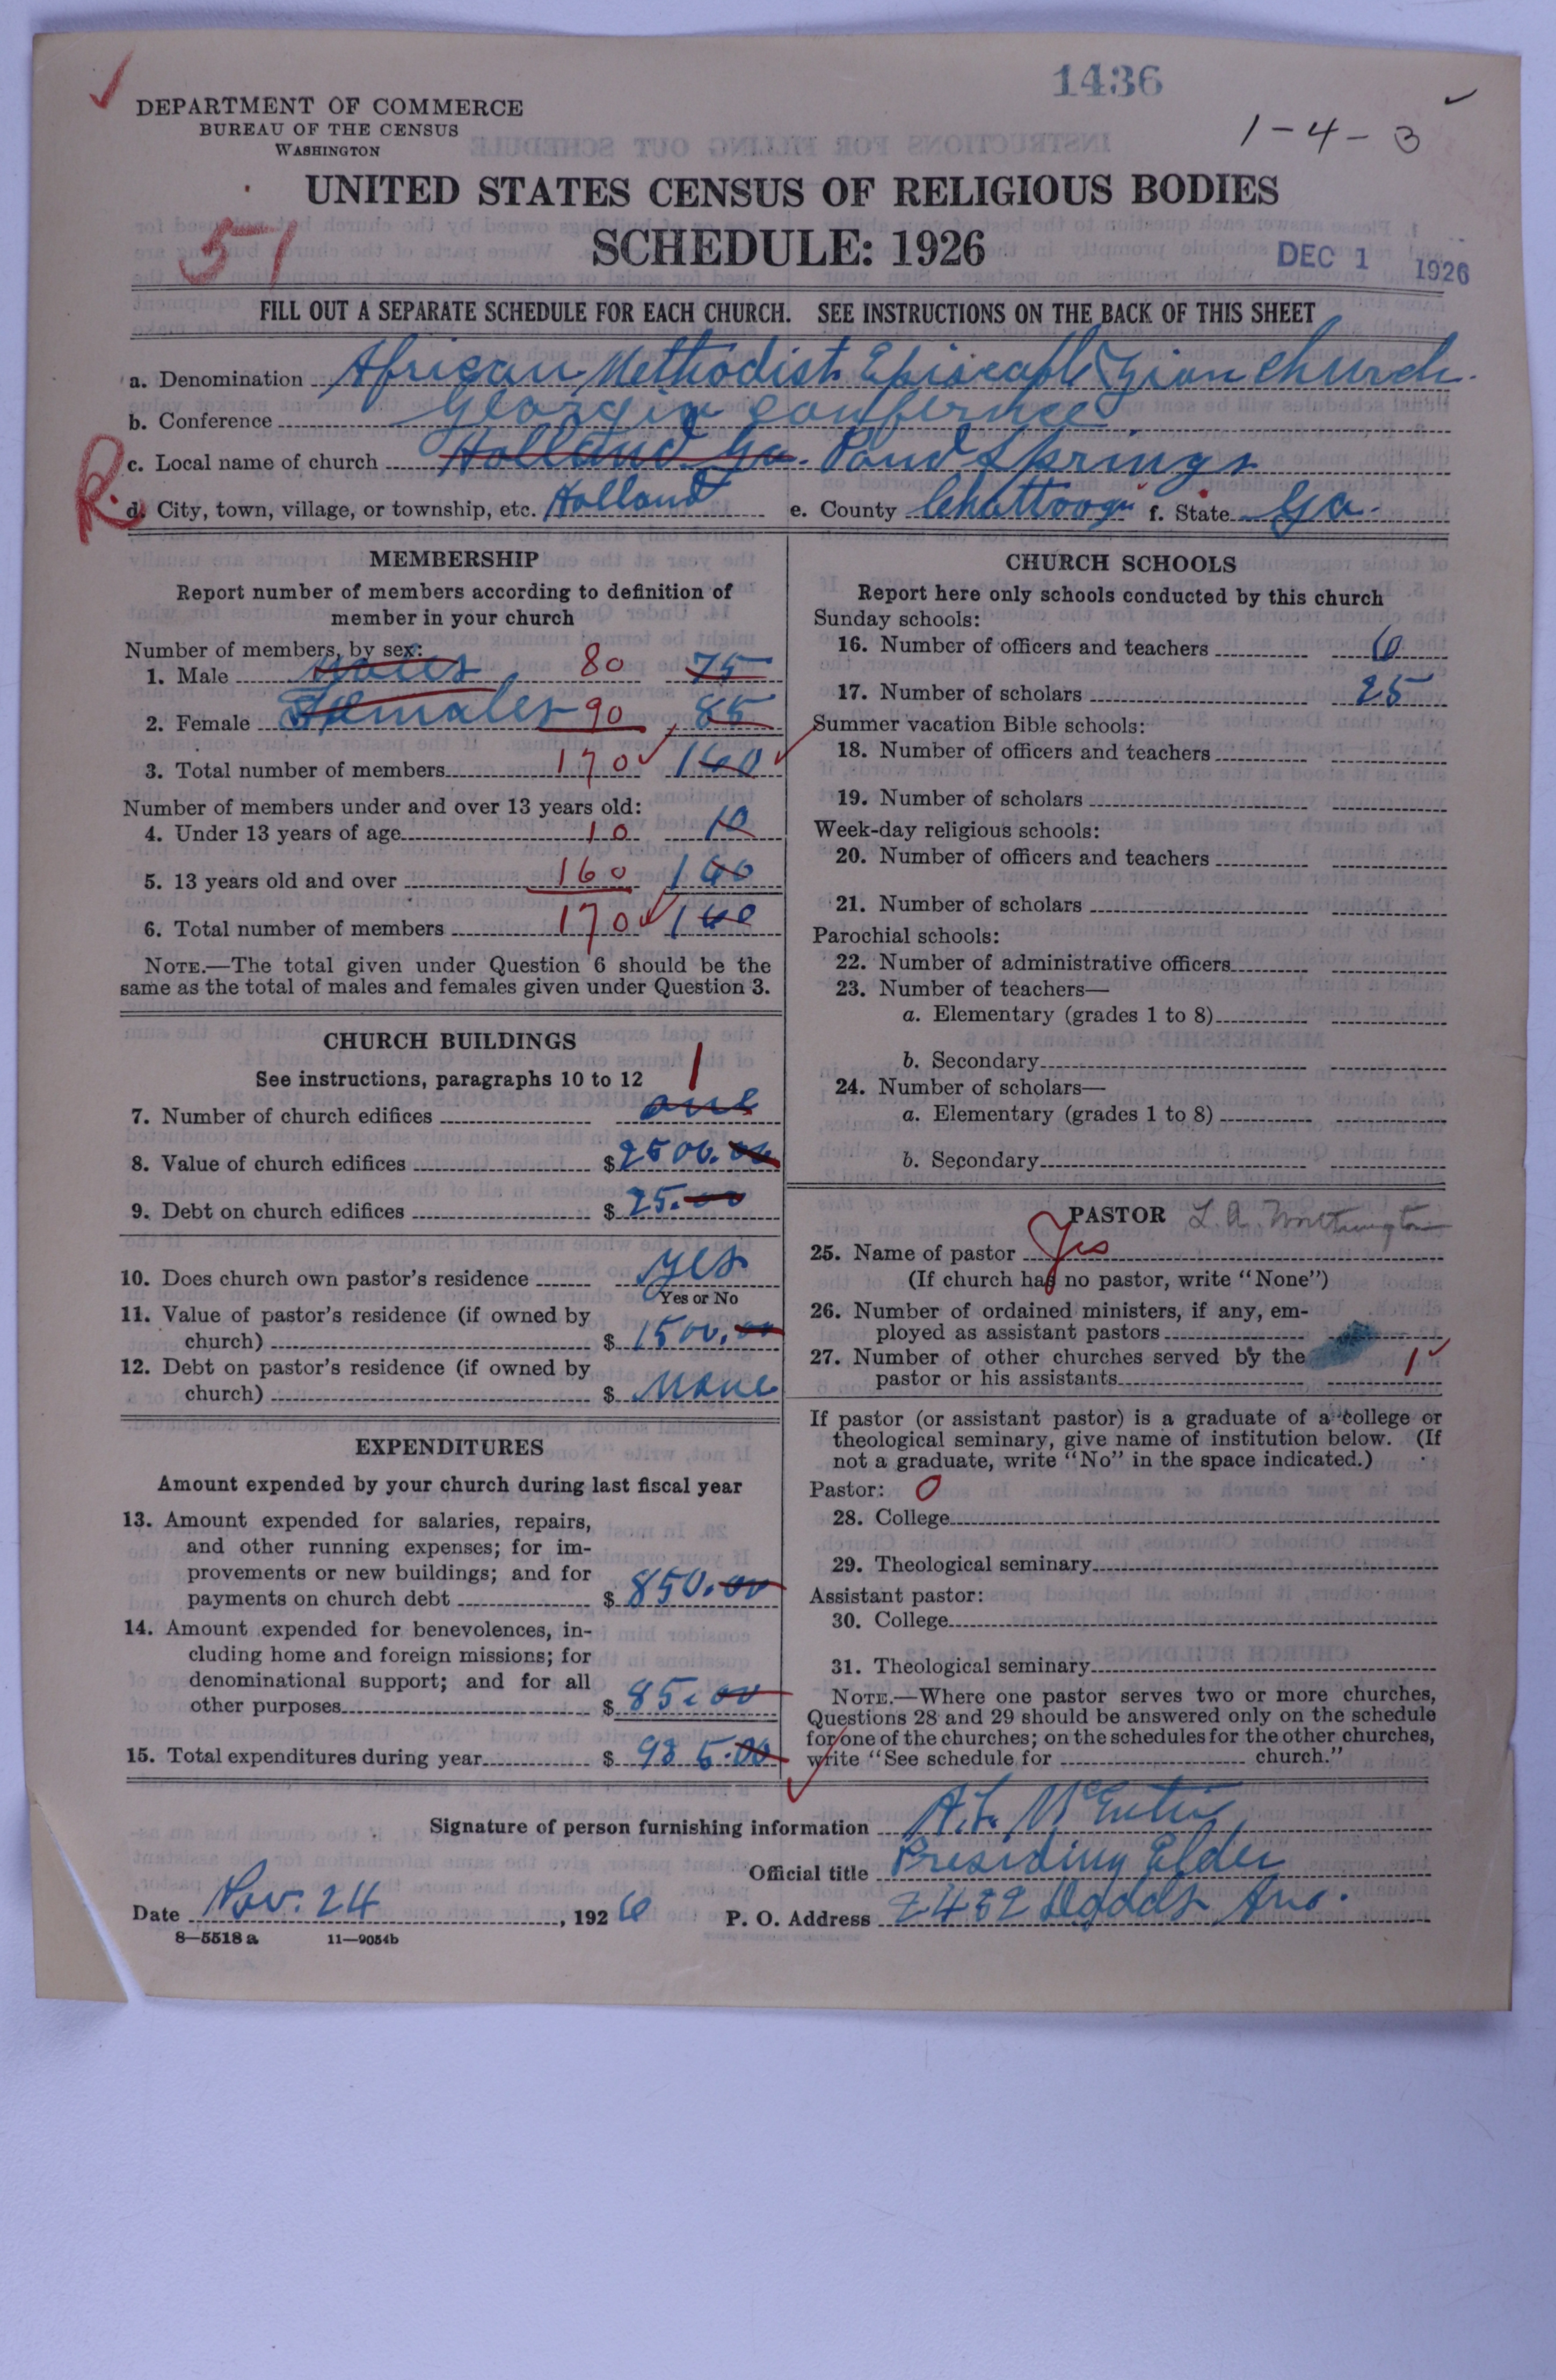 1436
DEPARTMENT OF COMMERCE
BUREAU OF THE CENSUS
WASHINGTON
1-4-3
UNITED STATES CENSUS OF RELIGIOUS BODIES
51
SCHEDULE: 1926
DEC 1 1926
FILL OUT A SEPARATE SCHEDULE FOR EACH CHURCH. SEE INSTRUCTIONS ON THE BACK OF THIS SHEET
a. Denomination African Methodist Episcopal Zion Church.
b. Conference Georgia Conference
R. c. Local name of church Holland Ga. Pond Springs
d. City, town, village, or township, etc. Holland e. County Chattooga f. State Ga.
MEMBERSHIP
Report number of members according to definition of
member in your church
Number of members, by sex:
1. Male Males 80 75
2. Female Females 90 85
3. Total number of members 170 160
Number of members under and over 13 years old:
4. Under 13 years of age 10 10
5. 13 years old and over 160
6. Total number of members 170 160
NOTE.—The total given under Question 6 should be the
same as the total of males and females given under Question 3.
CHURCH BUILDINGS
See instructions, paragraphs 10 to 12 1
7. Number of church edifices one
8. Value of church edifices $ 2500.00
9. Debt on church edifices $ 25.00
10. Does church own pastor's residence yes
Yes or No
11. Value of pastor's residence (if owned by
church) $ 1500.00
12. Debt on pastor's residence (if owned by
church) $ None
EXPENDITURES
Amount expended by your church during last fiscal year
13. Amount expended for salaries, repairs,
and other running expenses; for im-
provements or new buildings; and for
payments on church debt $ 850.00
14. Amount expended for benevolences, in-
cluding home and foreign missions; for
denominational support; and for all
other purposes $ 85.00
15. Total expenditures during year $ 935.00
CHURCH SCHOOLS
Report here only schools conducted by this church
Sunday schools:
16. Number of officers and teachers
17. Number of scholars 25
Summer vacation Bible schools:
18. Number of officers and teachers
19. Number of scholars
Week-day religious schools:
20. Number of officers and teachers
21. Number of scholars
Parochial schools:
22. Number of administrative officers
23. Number of teachers—
a. Elementary (grades 1 to 8)
b. Secondary
24. Number of scholars—
a. Elementary (grades 1 to 8)
b. Secondary
PASTOR L. A. Worthington
25. Name of pastor Yes
(If church has no pastor, write "None")
26. Number of ordained ministers, if any, em-
ployed as assistant pastors
27. Number of other churches served by the
pastor or his assistants 1
If pastor (or assistant pastor) is a graduate of a college or
theological seminary, give name of institution below. (If
not a graduate, write "No" in the space indicated.)
Pastor: 0
28. College
29. Theological seminary
Assistant pastor:
30. College
31. Theological seminary
NOTE.—Where one pastor serves two or more churches,
Questions 28 and 29 should be answered only on the schedule
for one of the churches; on the schedules for the other churches,
write "See schedule for church."
Signature of person furnishing information A.L. McEntire
Official title Presiding Elder
Date Nov. 24, 1926 P. O. Address 2432 Dodds Ave.
8—5518a 11—9054b